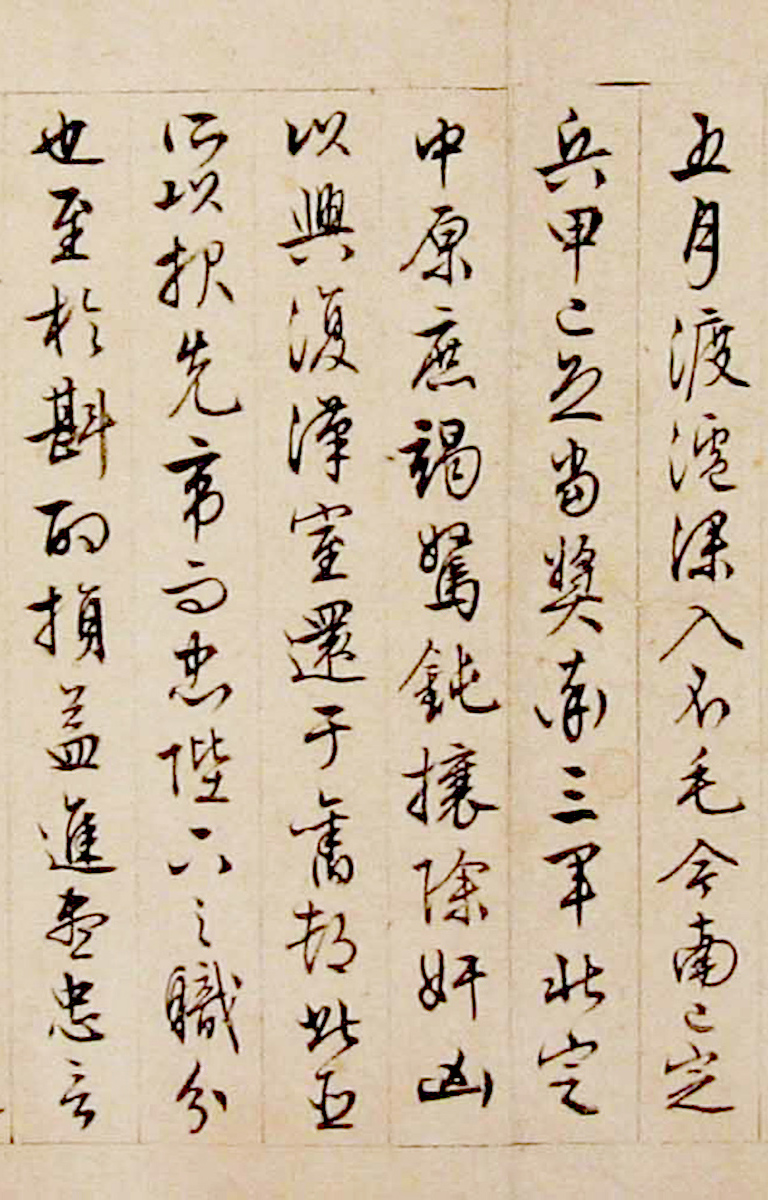 五月渡瀘深入不毛今南已定
兵甲已足當獎率三軍北定
中原庶竭駑鈍攘除奸凶
以興復漢室還于舊都此臣
所以報先帝而忠陛下之職分
也至於斟酌損益進盡忠言